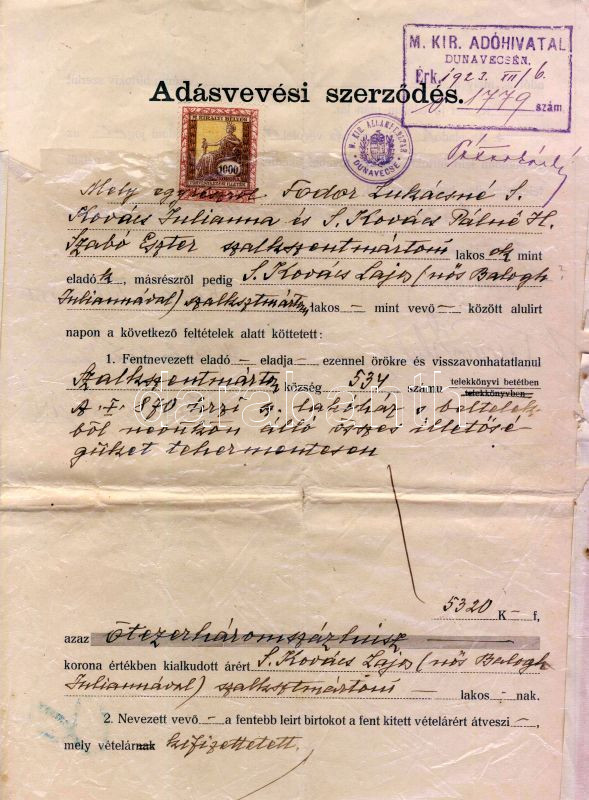 M. KIR. ADÓHIVATAL
DUNAVECSÉN.
Érk. 1923. XII/6.
1779 szám
Adásvevési szerződés.
M. KIRÁLYI BÉLYEG
1000
M. KIR. ÁLLAMPÉNZTÁR
DUNAVECSE
Mely egyrészről Fodor Lukácsné S.
Kovács Julianna és S. Kovács Pálné H.
Szabó Eszter szalkszentmártoni lakos ok mint
eladó k, másrészről pedig S. Kovács Lajos (nős Balogh
Juliannával) szalksztmárton lakos — mint vevő — között alulirt
napon a következő feltételek alatt köttetett:
1. Fentnevezett eladó — eladja — ezennel örökre és visszavonhatatlanul
Szalkszentmárton község 534 számu telekkönyvi betétben
telekkönyvben
A. I. 870 hrzi sz. lakóház s beltelek
ből nevükön álló összes illetősé
güket tehermentesen
darabanth
5320 K — f,
azaz Ötezerháromszázhúsz
korona értékben kialkudott árért S. Kovács Lajos (nős Balogh
Juliannával) szalksztmártoni — lakos - nak.
2. Nevezett vevő — a fentebb leirt birtokot a fent kitett vételárért átveszi —,
mely vételárnak kifizettetett.